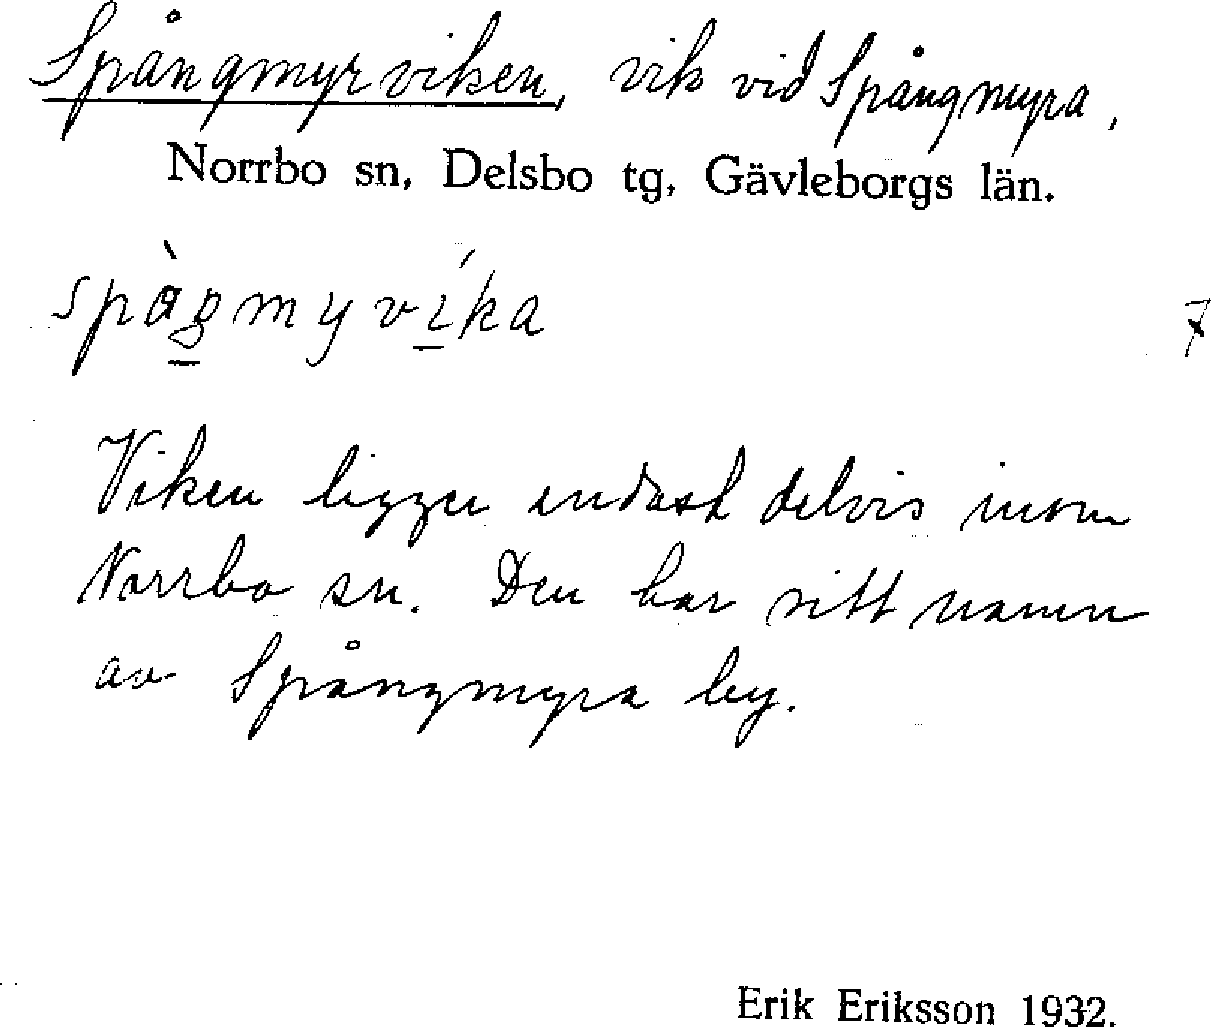 Spångmyrviken, vik vid Spångmyra,
Norrbo sn, Delsbo tg, Gävleborgs län.
7
Viken ligger endast delvis inom
Norrbo sn. Den har sitt namn
av Spångmyra by.
Erik Eriksson 1932.